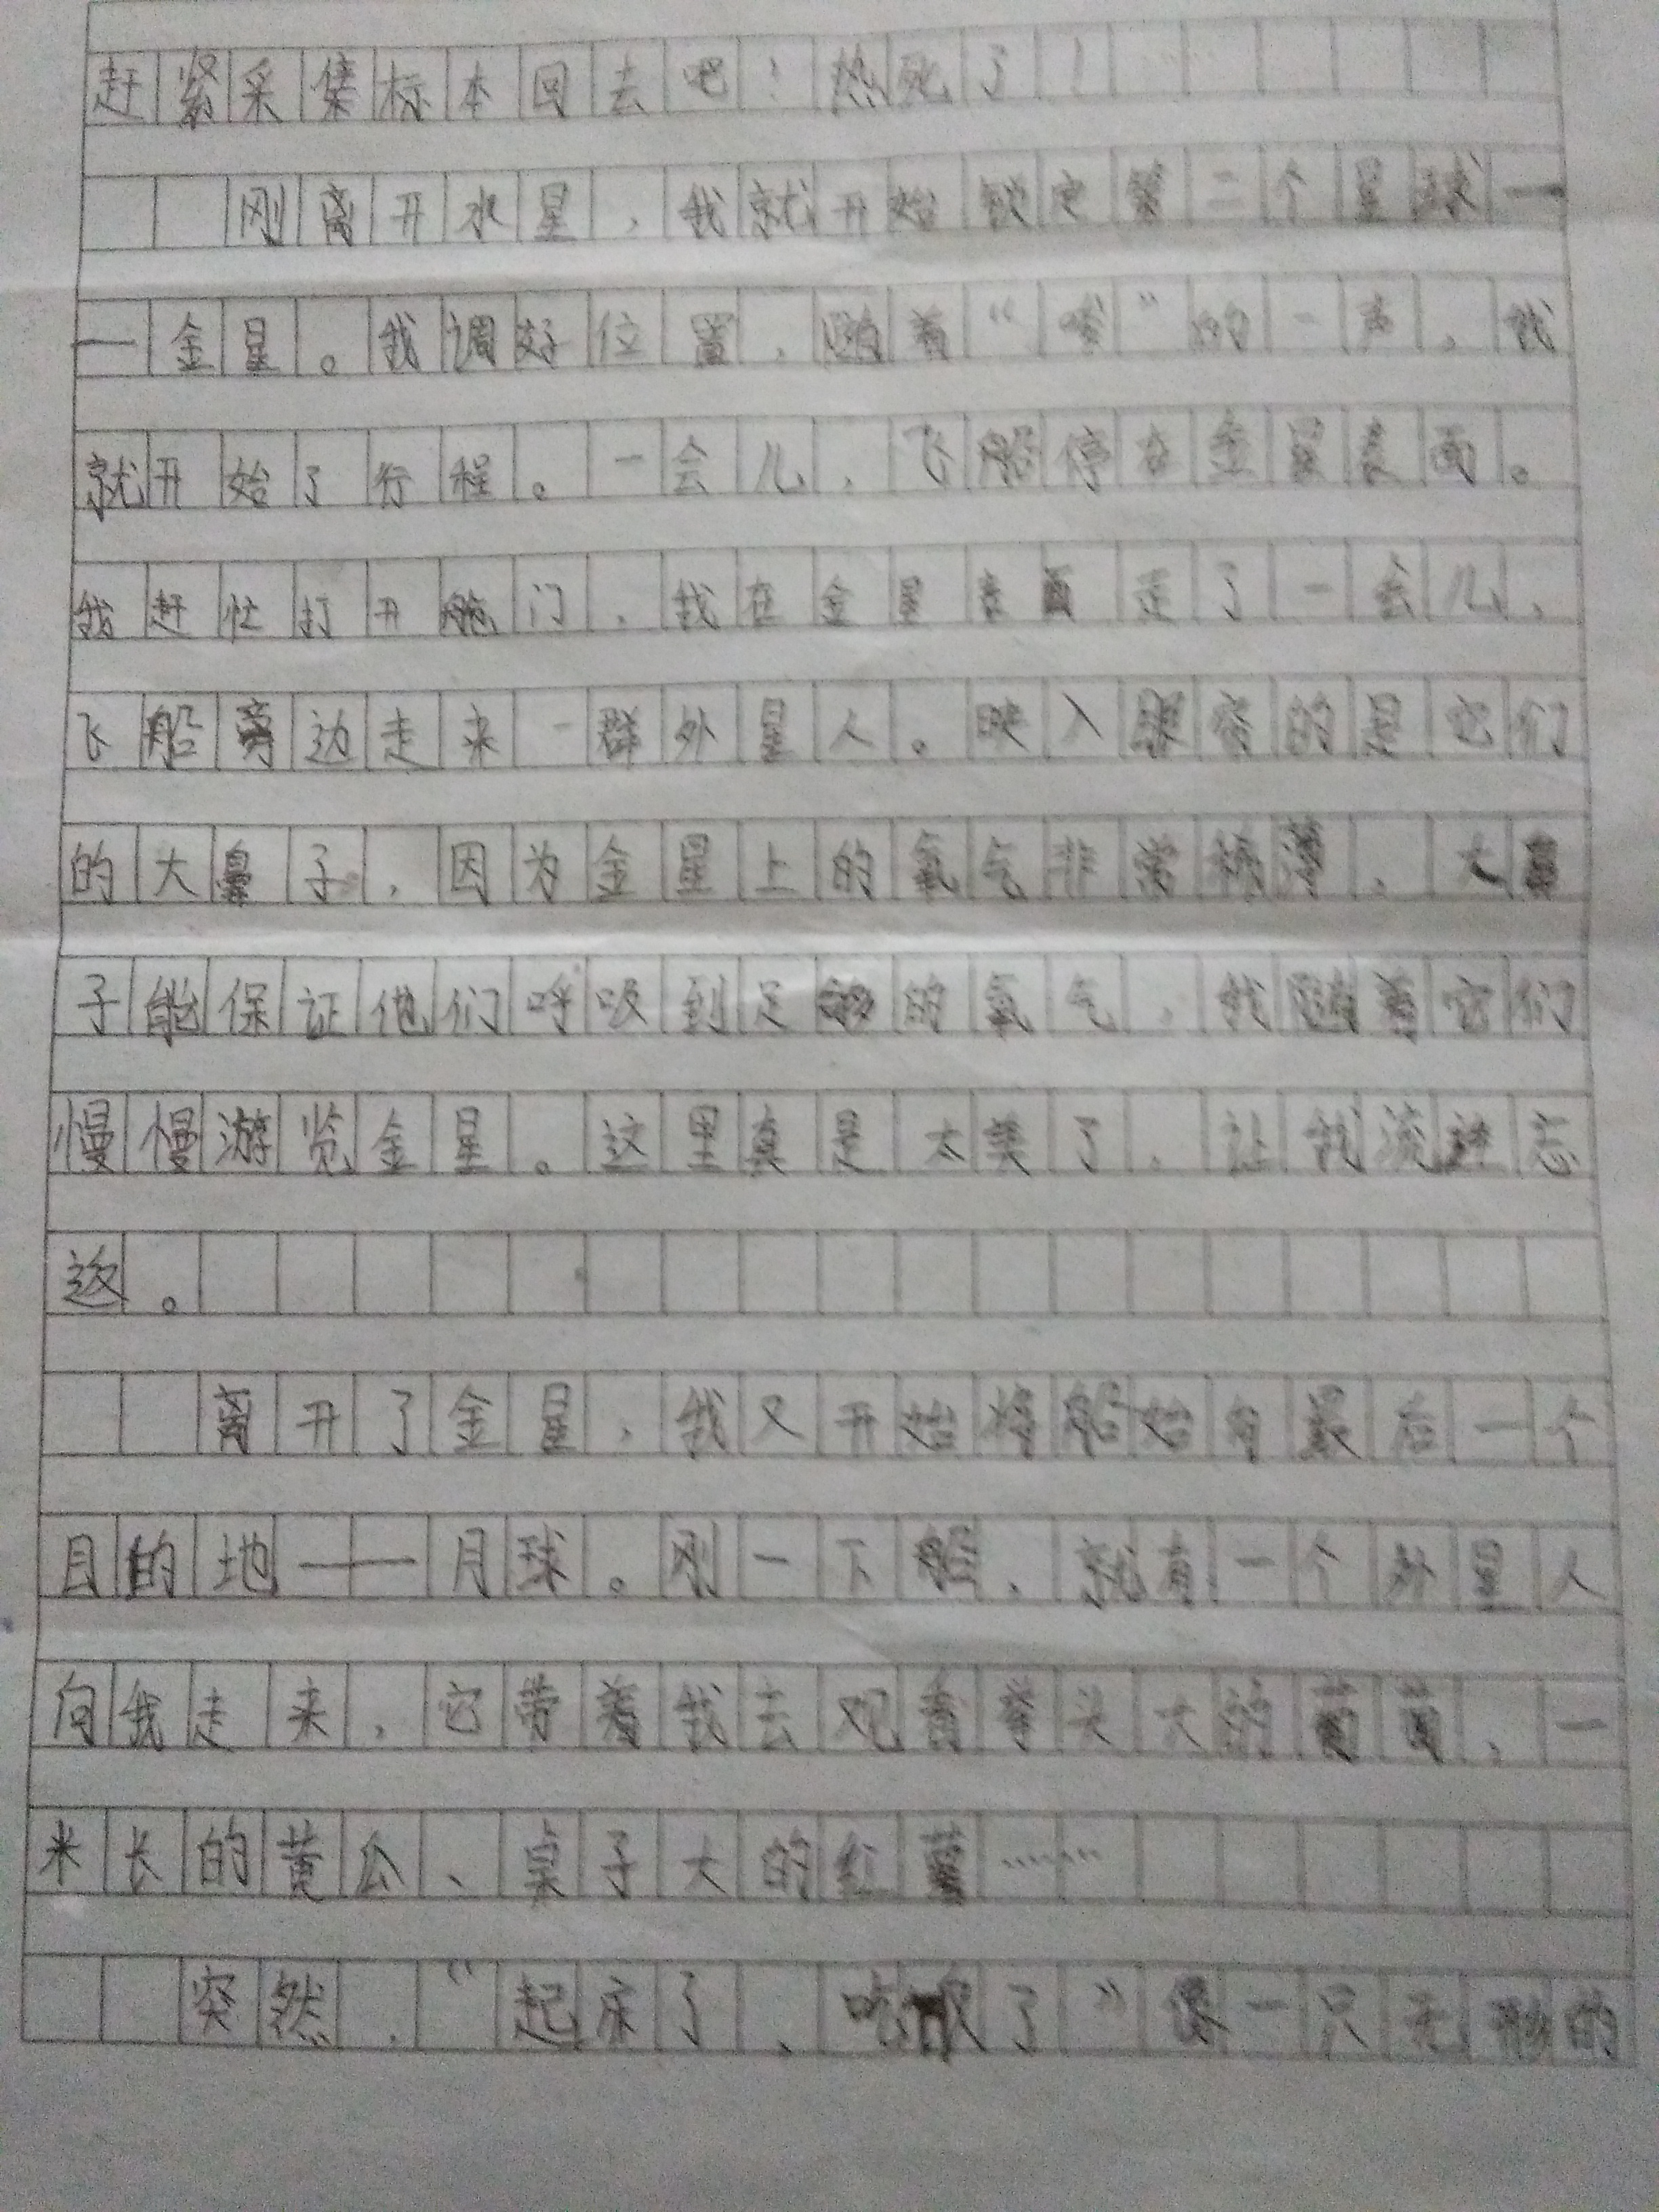 赶紧采集标本回去吧！热死了！
刚离开水星，我就开始锁定第二个星球—
—金星。我调好位置，随着“ ”的一声，我
就开始了行程。一会儿，飞船停在金星表面。
我赶忙打开舱门，我在金星表面走了一会儿，
飞船旁边走来一群外星人。映入眼帘的是它们
的大鼻子，因为金星上的氧气非常稀薄，大鼻
子能保证他们呼吸到足够的氧气，我随着它们
慢慢游览金星。这里真是太美了，让我流连忘
返。
离开了金星，我又开始将船 向最后一个
目的地——月球。刚一下船，就有一个外星人
向我走来，它带着我去观看拳头大的葡萄，一
米长的黄瓜、桌子大的红薯……
突然，“起床了，吃饭了”像一只无形的